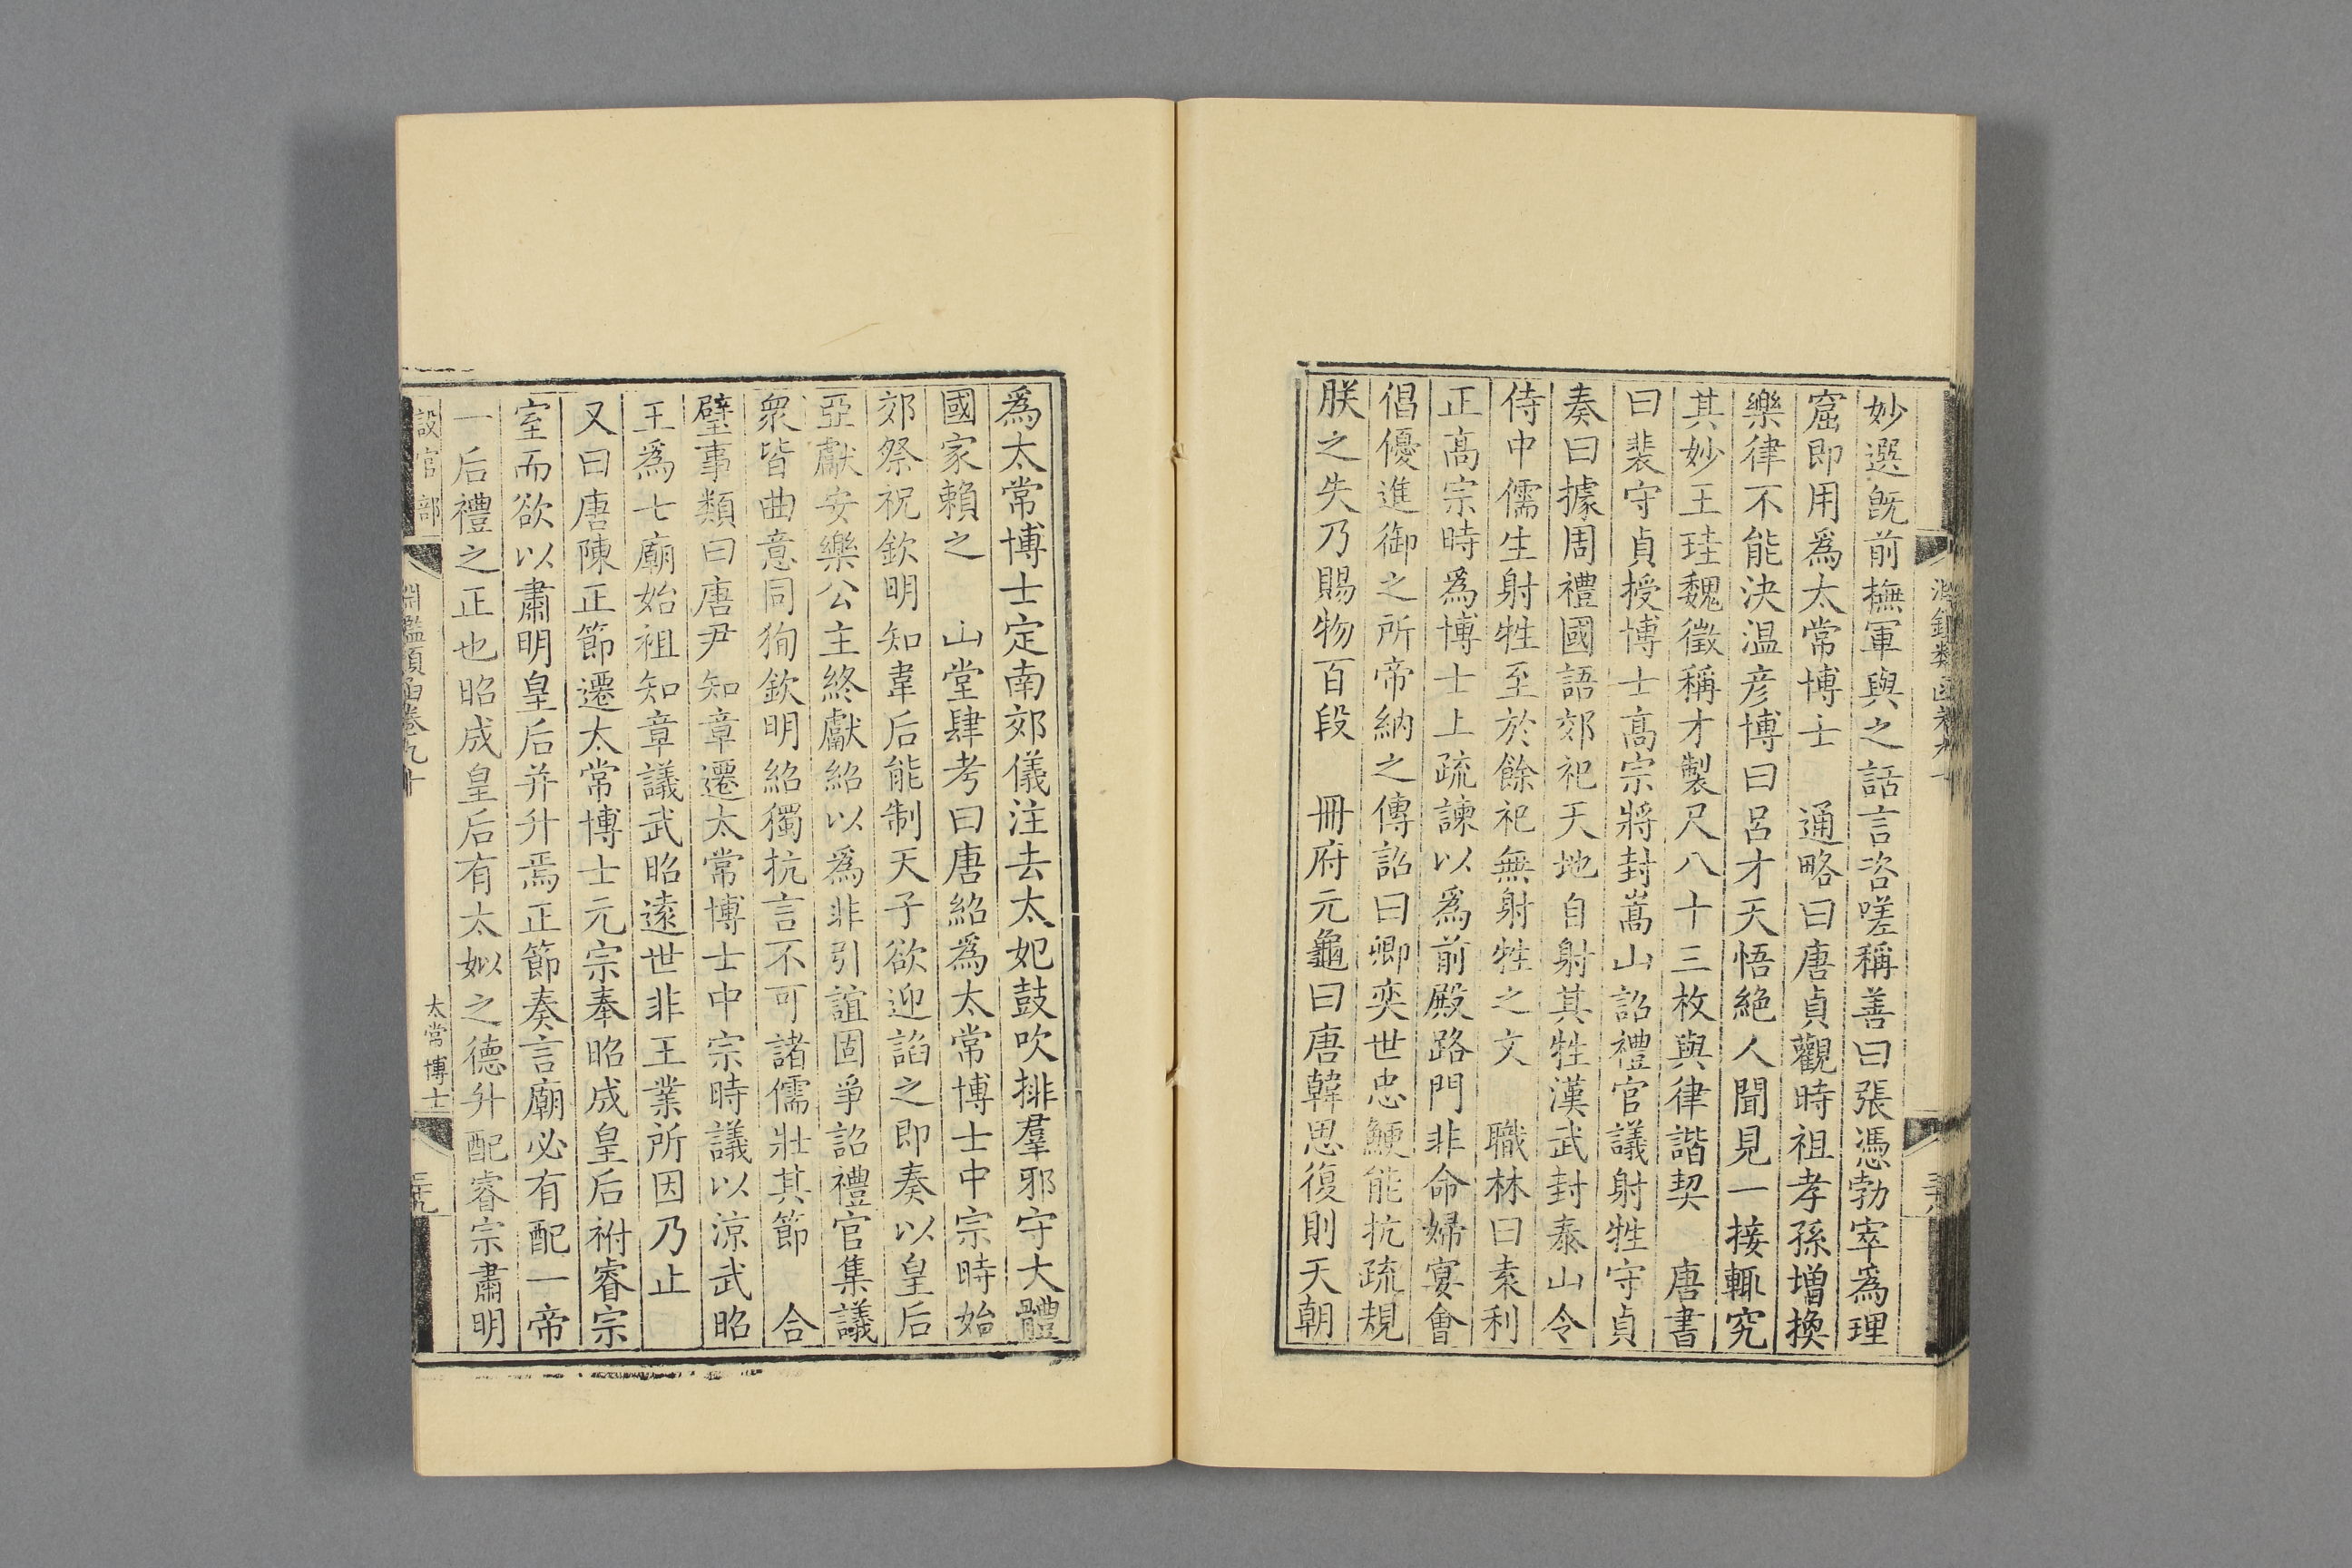 妙選既前撫軍與之話言咨嗟稱善曰張憑勃窣爲理
窟即用爲太常博士　通略曰唐貞觀時祖孝孫增換
樂律不能決温彦博曰呂才天悟絶人聞見一接輒究
其妙王珪魏徵稱才製尺八十三枚與律諧契　唐書
曰裴守貞授博士高宗將封嵩山詔禮官議射牲守貞
奏曰據周禮國語郊祀天地自射其牲漢武封泰山令
侍中儒生射牲至於餘祀無射牲之文　職林曰袁利
正高宗時爲博士上疏諫以爲前殿路門非命婦宴會
倡優進御之所帝納之傳詔曰卿奕世忠鯁能抗疏規
朕之失乃賜物百段　冊府元龜曰唐韓思復則天朝
爲太常博士定南郊儀注去太妃鼓吹排羣邪守大體
國家賴之　山堂肆考曰唐紹爲太常博士中宗時始
郊祭祝欽明知韋后能制天子欲迎諂之即奏以皇后
亞獻安樂公主終獻紹以爲非引誼固爭詔禮官集議
衆皆曲意同狥欽明紹獨抗言不可諸儒壯其節　合
璧事類曰唐尹知章遷太常博士中宗時議以涼武昭
王爲七廟始祖知章議武昭遠世非王業所因乃止
又曰唐陳正節遷太常博士元宗奉昭成皇后祔睿宗
室而欲以肅明皇后并升焉正節奏言廟必有配一帝
一后禮之正也昭成皇后有太姒之德升配睿宗肅明
設官部
淵鑑類函卷九十
太常博士